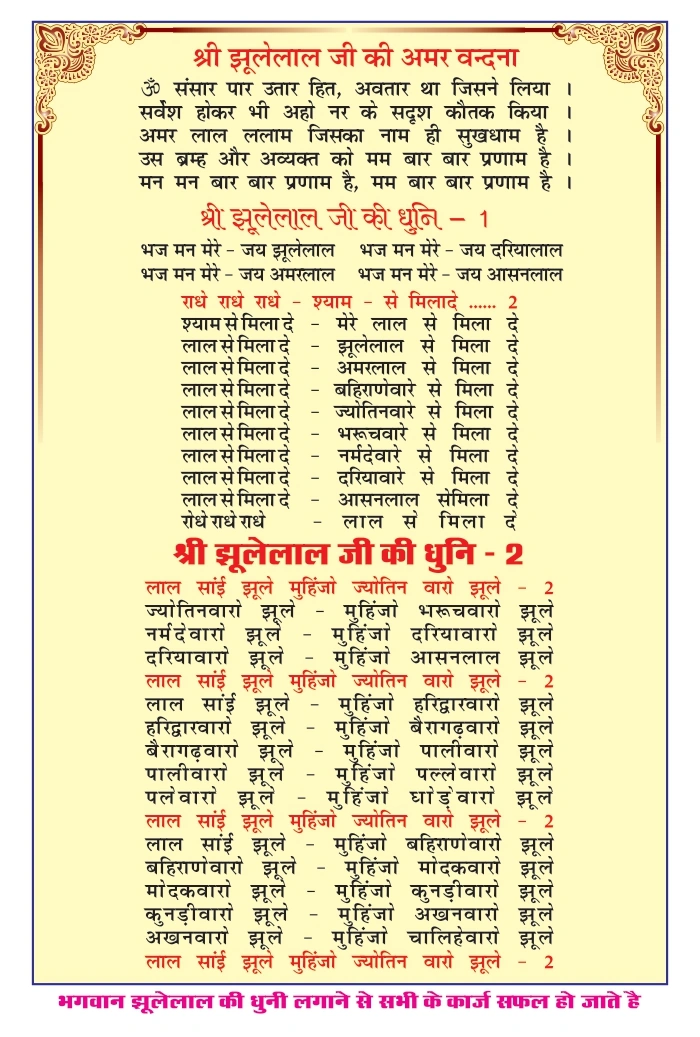 श्री झूलेलाल जी की अमर वन्दना
ॐ संसार पार उतार हित, अवतार था जिसने लिया ।
सर्वेश होकर भी अहो नर के सदृश कौतक किया ।
अमर लाल ललाम जिसका नाम ही सुखधाम है ।
उस ब्रम्ह और अव्यक्त को मम बार बार प्रणाम है ।
मन मन बार बार प्रणाम है, मम बार बार प्रणाम है ।
श्री झूलेलाल जी की धुनि – 1
भज मन मेरे - जय झूलेलाल भज मन मेरे - जय दरियालाल
भज मन मेरे - जय अमरलाल भज मन मेरे - जय आसनलाल
राधे राधे राधे - श्याम - से मिलादे ...... 2
श्याम से मिला दे - मेरे लाल से मिला दे
लाल से मिला दे - झूलेलाल से मिला दे
लाल से मिला दे - अमरलाल से मिला दे
लाल से मिला दे - बहिराणेवारे से मिला दे
लाल से मिला दे - ज्योतिनवारे से मिला दे
लाल से मिला दे - भरूचवारे से मिला दे
लाल से मिला दे - नर्मदेवारे से मिला दे
लाल से मिला दे - दरियावारे से मिला दे
लाल से मिला दे - आसनलाल सेमिला दे
रोधे राधे राधे - लाल से मिला दे
श्री झूलेलाल जी की धुनि - 2
लाल सांई झूले मुहिंजो ज्योतिन वारो झूले - 2
ज्योतिनवारो झूले - मुहिंजो भरूचवारो झूले
नर्मदेवारो झूले - मुहिंजो दरियावारो झूले
दरियावारो झूले - मुहिंजो आसनलाल झूले
लाल सांई झूले मुहिंजो ज्योतिन वारो झूले - 2
लाल सांई झूले - मुहिंजो हरिद्वारवारो झूले
हरिद्वारवारो झूले - मुहिंजो बैरागढ़वारो झूले
बैरागढ़वारो झूले - मुहिंजो पालीवारो झूले
पालीवारो झूले - मुहिंजो पल्लेवारो झूले
पलेवारो झूले - मुहिंजो घोड़ेवारो झूले
लाल सांई झूले मुहिंजो ज्योतिन वारो झूले - 2
लाल सांई झूले - मुहिंजो बहिराणेवारो झूले
बहिराणेवारो झूले - मुहिंजो मोदकवारो झूले
मोदकवारो झूले - मुहिंजो कुनड़ीवारो झूले
कुनड़ीवारो झूले - मुहिंजो अखनवारो झूले
अखनवारो झूले - मुहिंजो चालिहेवारो झूले
लाल सांई झूले मुहिंजो ज्योतिन वारो झूले - 2
भगवान झूलेलाल की धुनी लगाने से सभी के कार्ज सफल हो जाते है